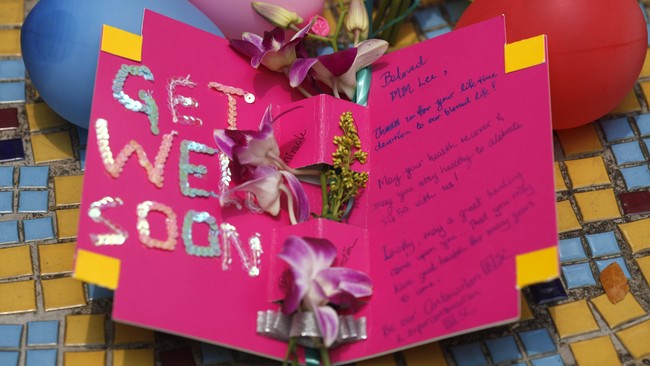 GET
WELL
SOON
Beloved
MM Lee,
Thank you for your lifetime
devotion to our beloved
May your health recover &
may you stay healthy to celebrate
SG 50 with us!
Lastly, may a great healing
come upon you. And you may
have good health for many years
to come.